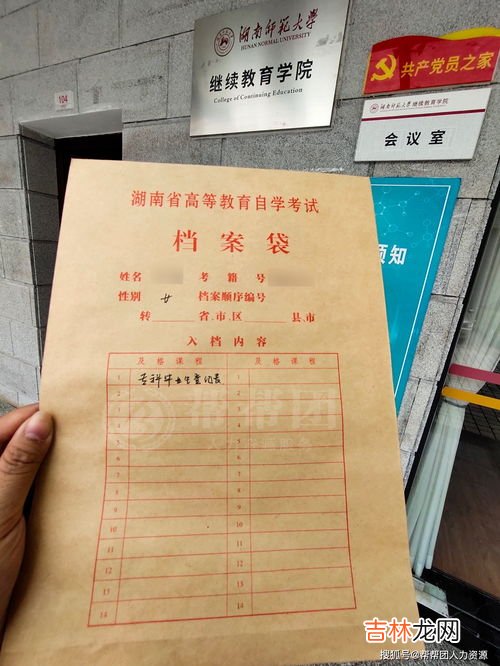 湖南师范大学
HUNAN NORMAL UNIVERSITY
继续教育学院
College of Continuing Education
共产党员之家
湖南师范大学继续教育学院
会议室
104
须知
湖南省高等教育自学考试
档案袋
姓名 考籍号
性别 女 档案顺序编号
转 省.市.区 县.市
入档内容
及格课程 及格课程
1 专科毕业生登记表 1
2 2
3 3
4 4
5 5
6 6
7 7
8 8
9 9
10 10
11 11
12 12
13 13
14 14
帮帮团
吉林龙网
搜狐号@帮帮团人力资源